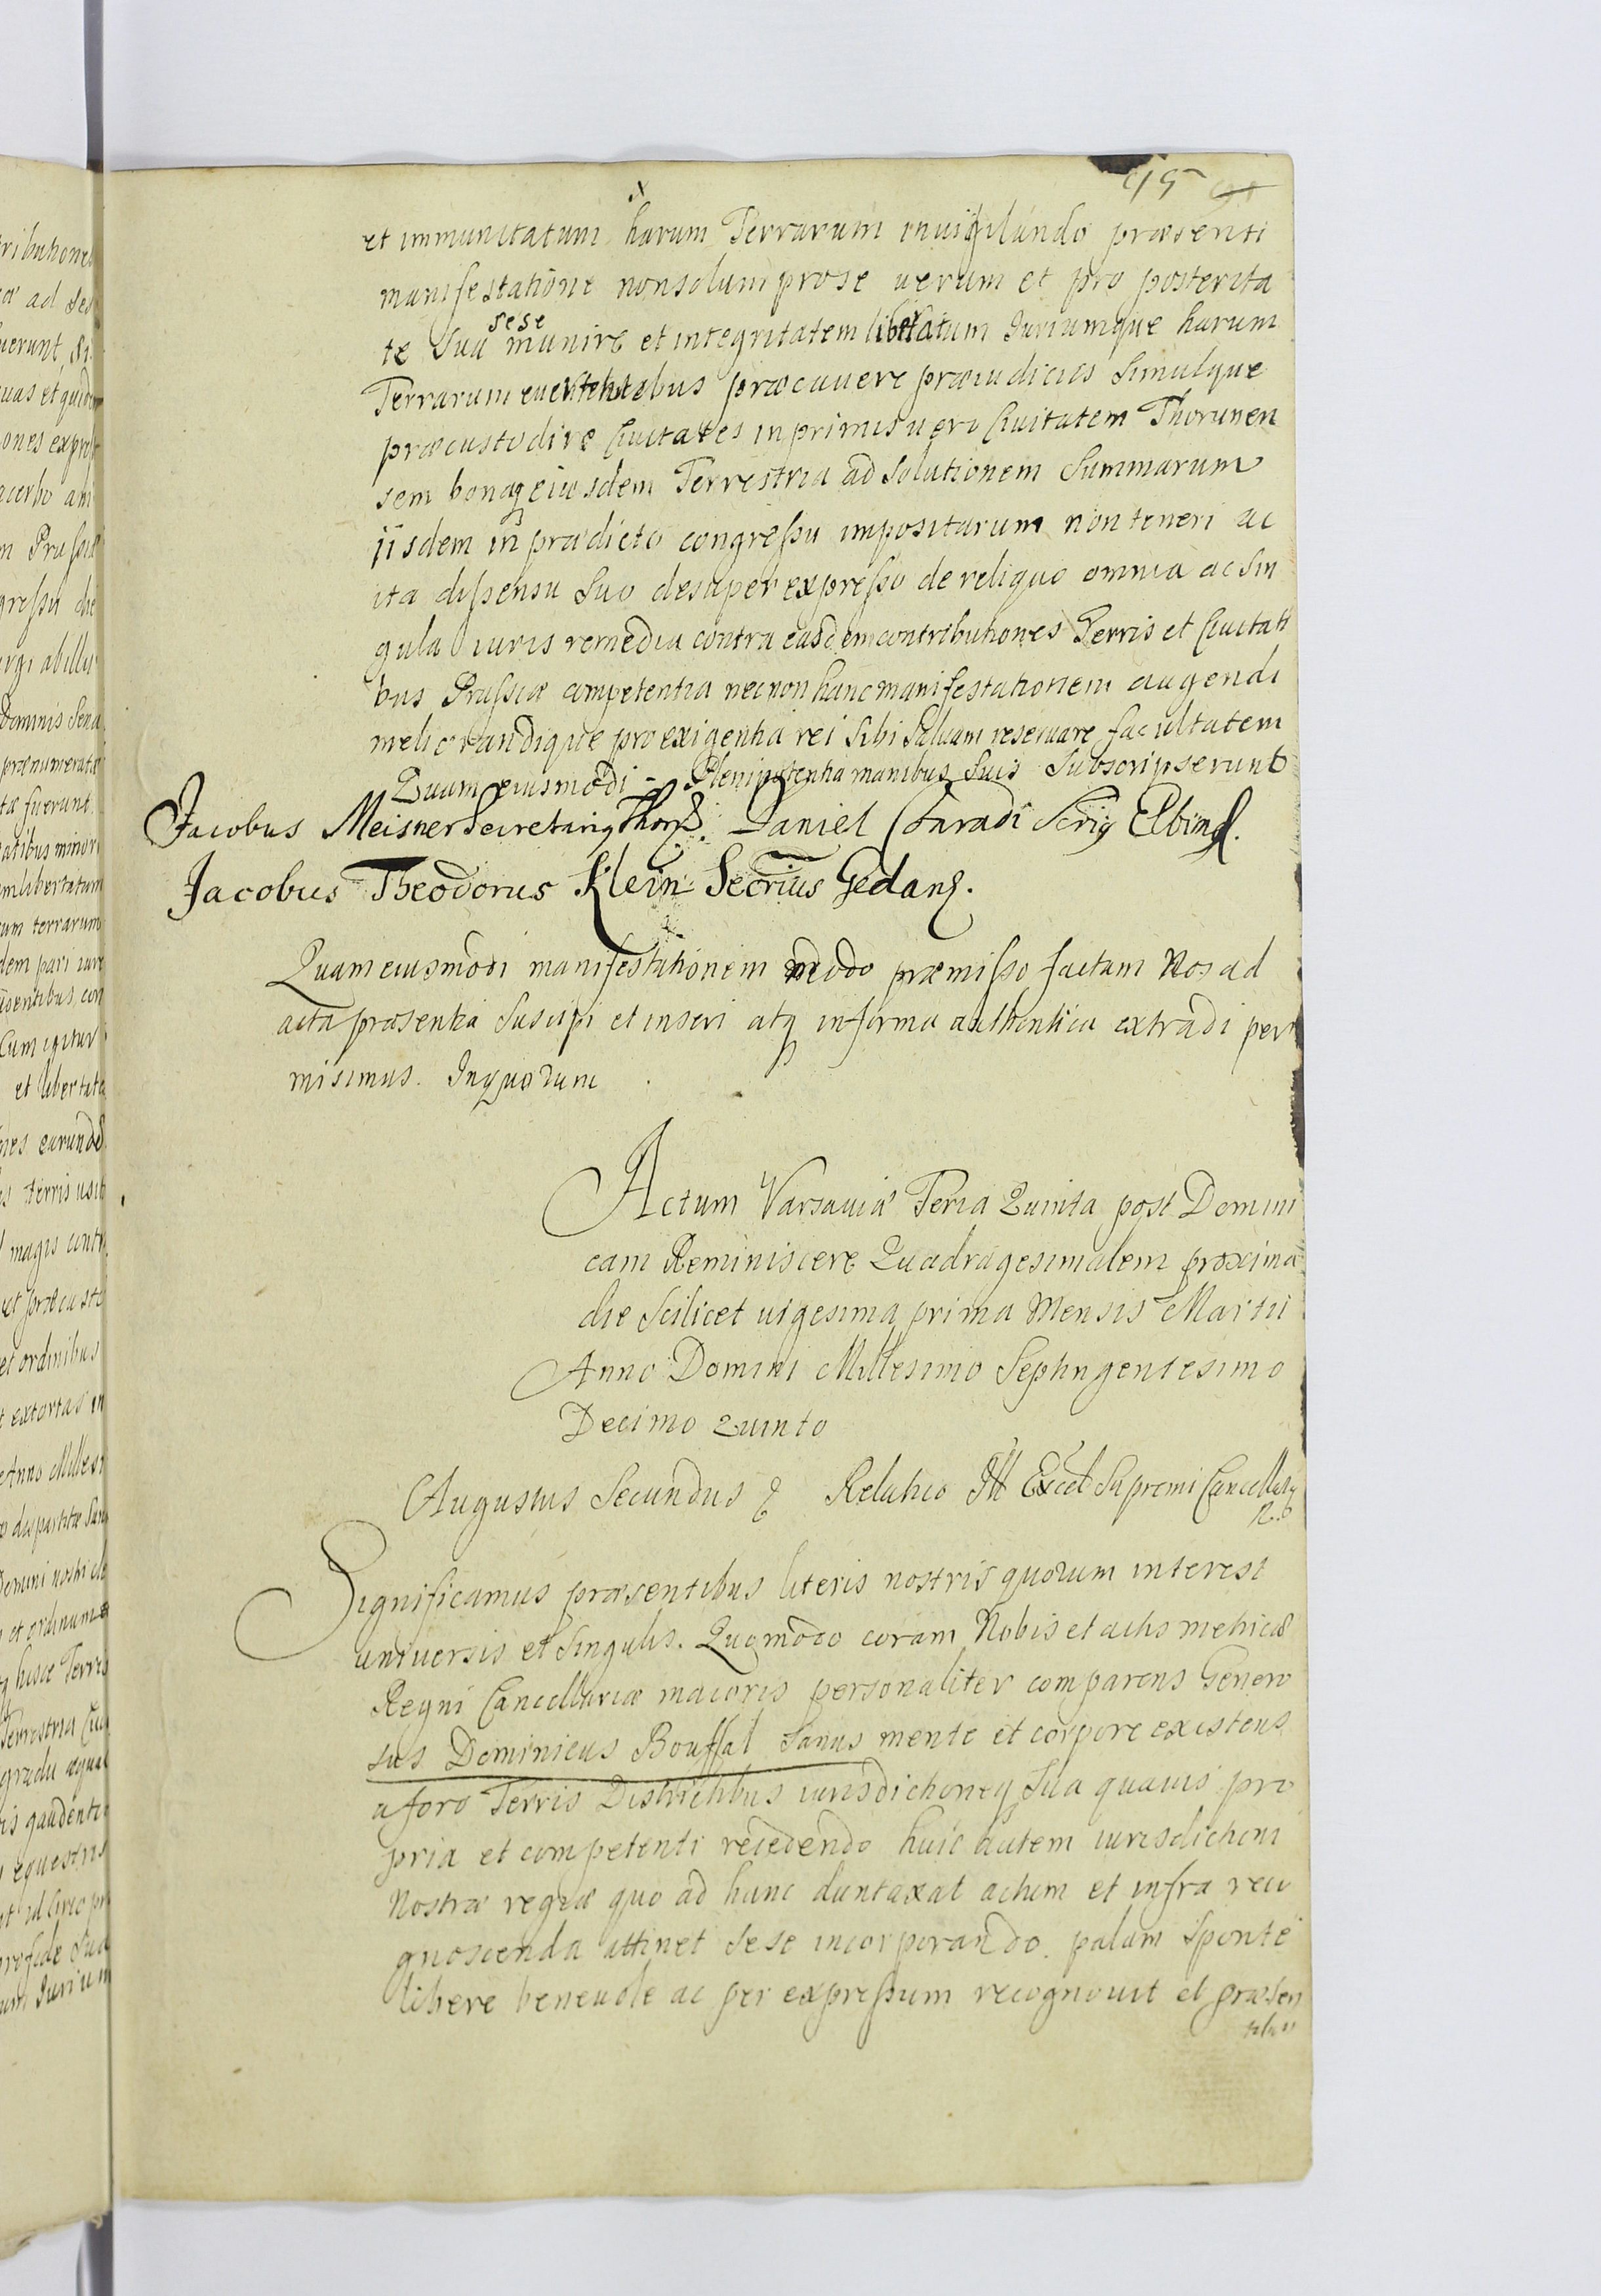 95
et immunitatum harum Terrarum inuigilando præsenti
manifestatione nonsolum pro se uerum et pro posterita
te Sua sese munire et integritatem libertatum Iuriumque harum
Terrarum euertentibus præcauere præiudiciis Simulque
præcustodire Ciuitates inprimis uero Ciuitatem Thorunen
sem bonaq eiusdem Terrestria ad Solutionem Summarum
iisdem in prædicto congreſsu impositarum non teneri ac
ita diſsensu Suo desuper expreſso de reliquo omnia ac Sin
gula iuris remedia contra easdem contributiones Terris et Ciuitati
bus Pruſsiæ competentia necnon hanc manifestationem augendi
meliorandique pro exigentia rei Sibi Saluam reseruare facultatem
Quam eiusmodi - Plenipotentia manibus Suis Subscripserunt
Jacobus Meisner Secretariq Thor. Daniel Conradi Scriq Elbing.
Jacobus Theodorus Klein Secrius Gedang.
Quam eiusmodi manifestationem modo præmiſso factam Nos ad
acta præsentia Suscipi et inseri atq in forma authentica extradi per
misimus. In quorum
Actum Varsauiæ Feria Quinta post Domini
cam Reminiscere Quadragesimalem proxima
die Scilicet uigesima prima Mensis Martii
Anno Domini Millesimo Septingentesimo
Decimo Quinto
Augustus Secundus & Relatio Ill Excel Supremi Cancellarij
R.
Significamus præsentibus literis nostris quorum interest
uniuersis et Singulis. Quomodo coram Nobis et actis metricæ
Regni Cancellariæ maioris personaliter comparens Genero
sus Dominicus Bouffal Sanus mente et corpore existens
a foro Terris Districtibus iurisdictioneq Sua quauis pro
pria et competenti recedendo huic autem iurisdictioni
Nostræ regiæ quo ad hunc duntaxat actum et infra reco
gnoscenda attinet Sese incorporando. palam Sponte
libere beneuole ac per expreſsum recognouit et præsen